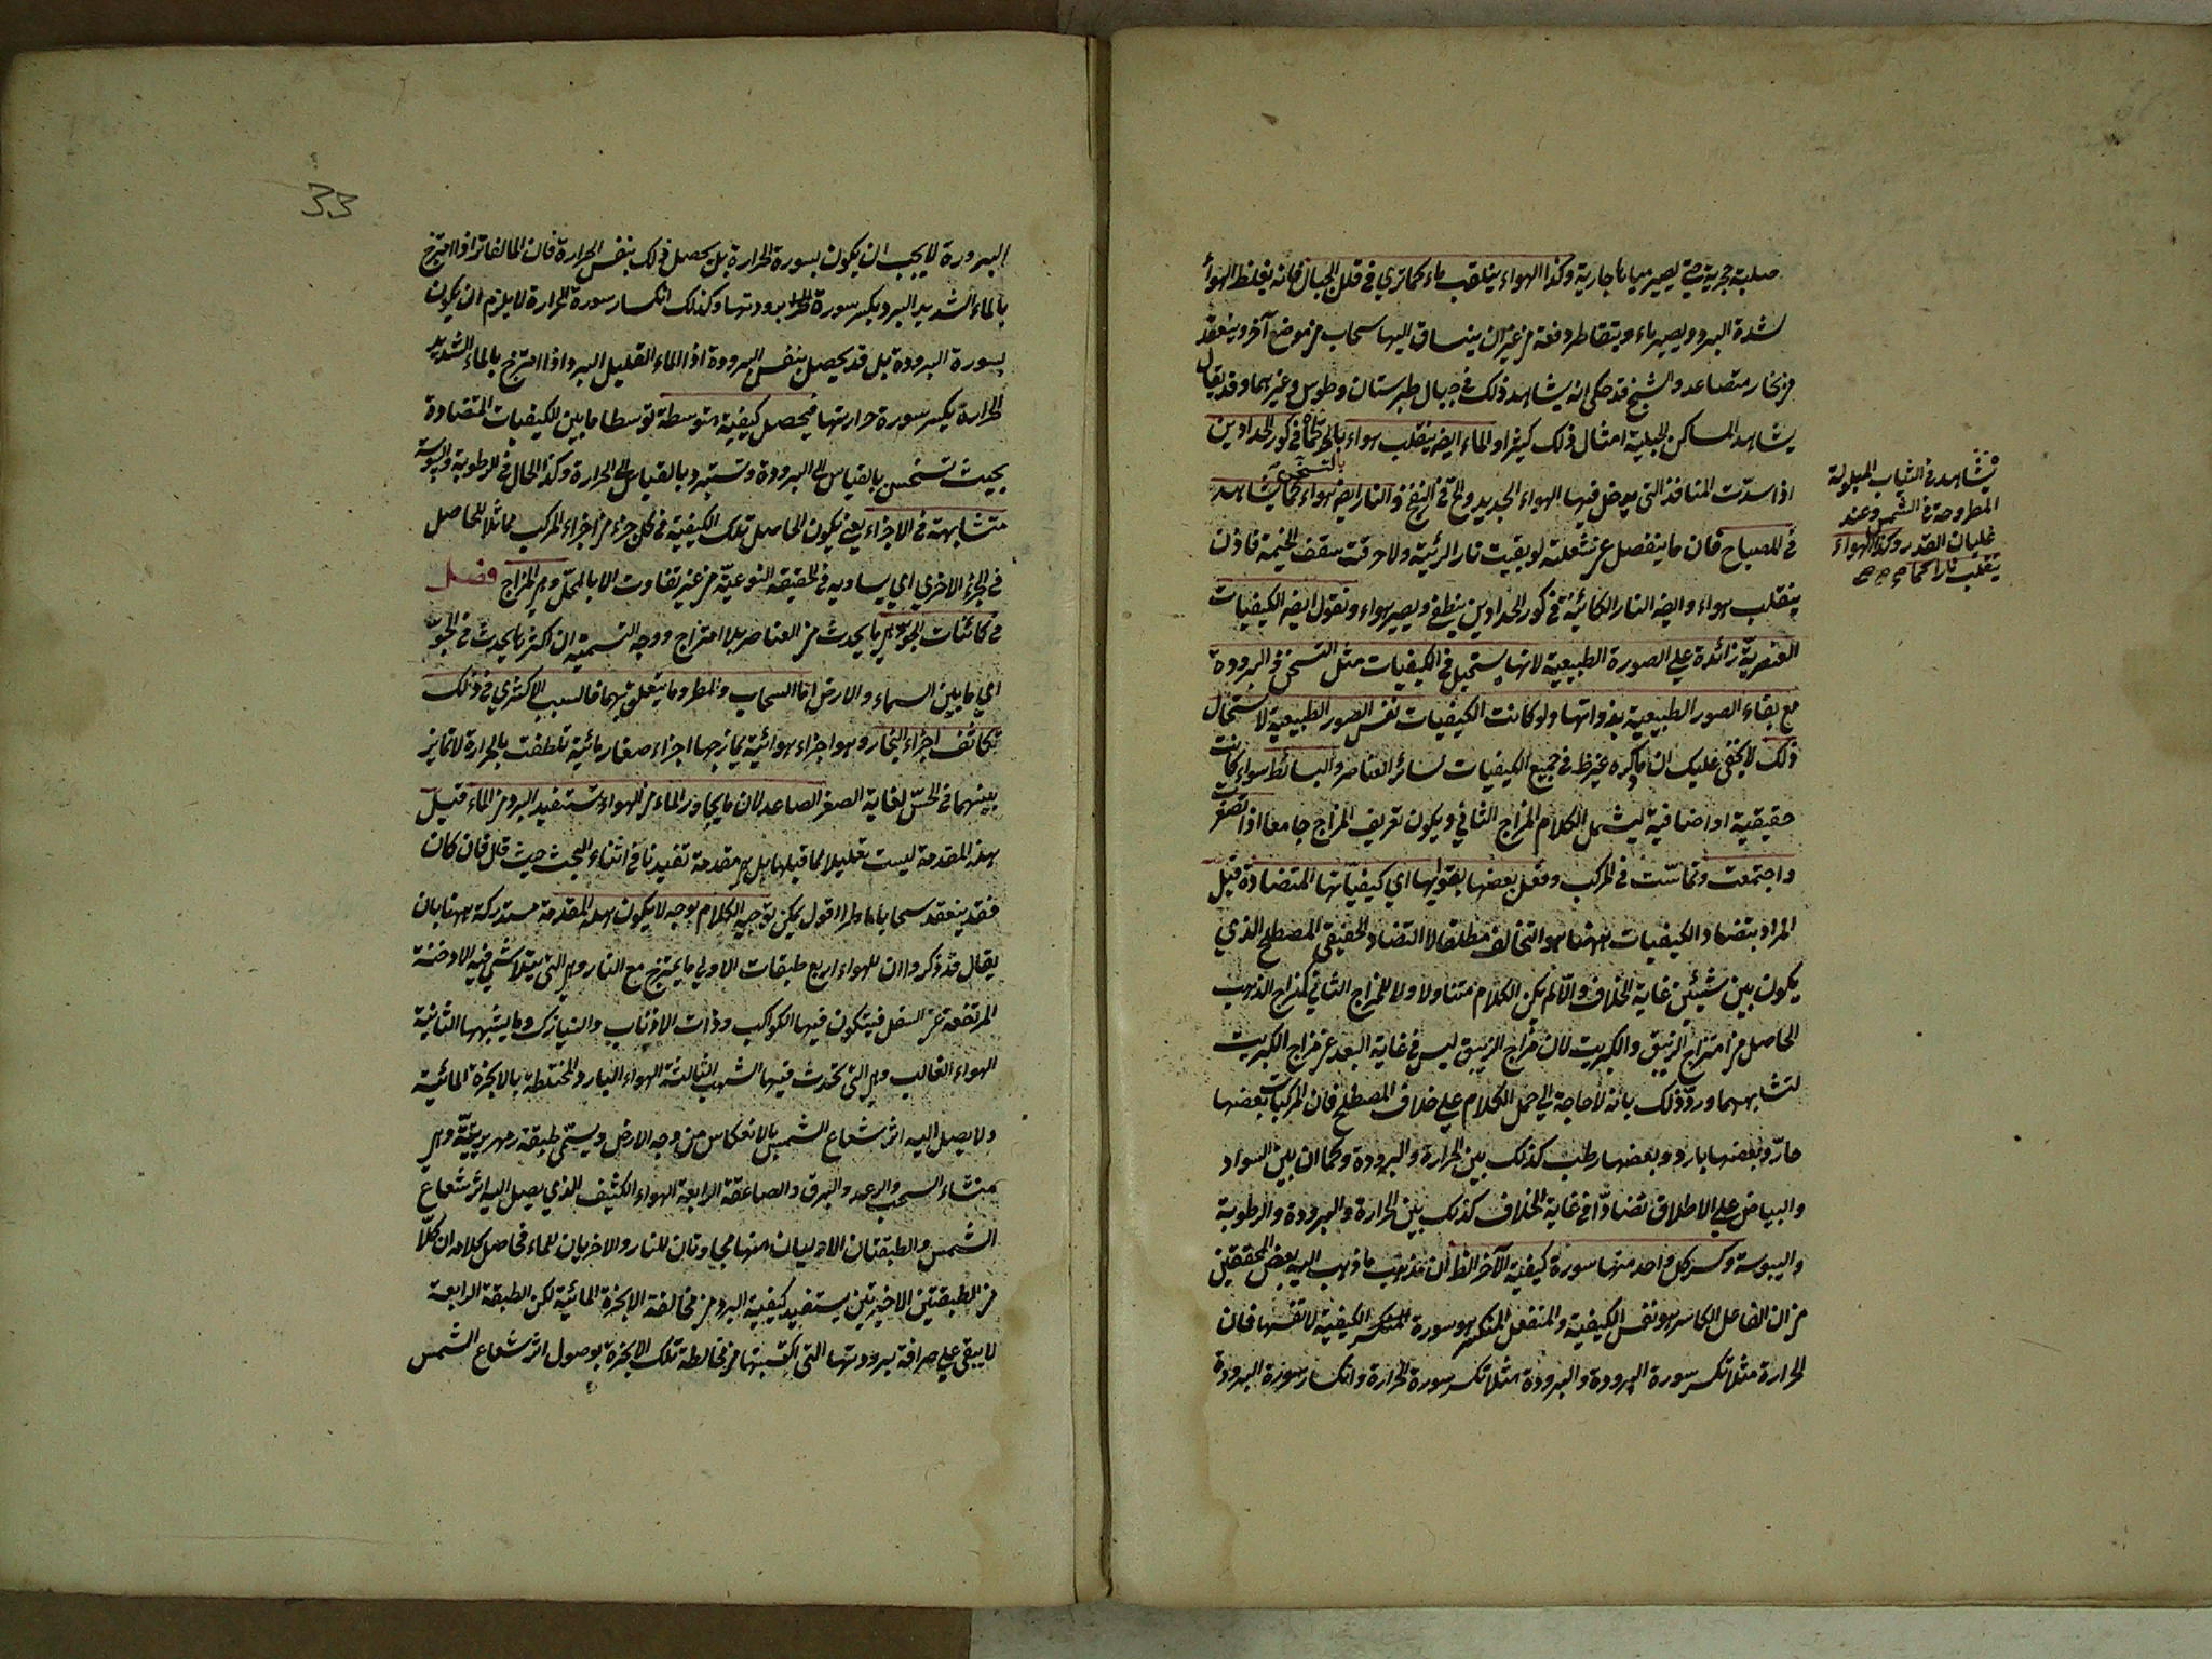 صلبة حجرية حتى يصير مياها جارية وكذا الهواء ينقلب ماء كما ترى في قلل الجبال فانه يغلظ الهواء
لشدة البرد ويصير ماء ويتقاطر دفعة من غير ان ينساق اليها سحاب من موضع آخر وينعقد
من بخار متصاعد والشيخ قد حكى انه يشاهد ذلك في جبال طبرستان وطوس وغيرهما وقد يقال
يشاهد المساكن الجبلية امثال ذلك كثيرا والماء ايضا ينقلب هواء بالحر كما في كور الحدادين
بالتسخن
اذا سدت المنافذ التي يدخل فيها الهواء الجديد والح في النفخ والنار ايضا هواء كما يشاهد
في المصباح فان ما ينفصل عن شعلته لو بقيت نار الرئية ولاحرقت سقف الخيمة فاذن
ينقلب هواء وايضا النار الكائنة في كور الحدادين ينطفي ويصير هواء ونقول ايضا الكيفيات
العنصرية زائدة على الصورة الطبيعية لانها يستحيل في الكيفيات مثل التسخن في البرودة
مع بقاء الصور الطبيعية بذواتها ولو كانت الكيفيات نفس الصور الطبيعية لاستحال
ذلك لا يخفى عليك ان ما ذكره غير ظ في جميع الكيفيات لسائر العناصر والبسائط سواء كانت
حقيقية او اضافية ليشمل الكلام المزاج الثاني ويكون تعريف المزاج جامعا اذا تصغرت
واجتمعت وتماست في المركب وفعل بعضها بقواها اي كيفياتها المتضادة قيل
المراد بتضاد الكيفيات ههنا هو التخالف مطلقا لا التضاد الحقيقي المصطلح الذي
يكون بين شيئين غاية الخلاف والا لم يكن الكلام متناولا للمزاج الثاني كمزاج الذهب
الحاصل من امتزاج الزيبق والكبريت لان مزاج الزيبق ليس في غاية البعد عن مزاج الكبريت
لتشابههما ورد ذلك بانه لا حاجة الى حمل الكلام على خلاف المصطلح فان المركبات بعضها
حار وبعضها بارد وبعضها رطب كذلك بين الحرارة والبرودة وكما ان بين السواد
والبياض على الاطلاق تضادا في غاية الخلاف كذلك بين الحرارة والبرودة والرطوبة
واليبوسة وكسر كل واحد منها سورة كيفية الآخر الظ ان مذهب ما ذهب اليه بعض المحققين
من ان الفاعل الكاسر هو نفس الكيفية والمنفعل المنكسر هو سورة الكيفية لا نفسها فان
الحرارة مثلا تكسر سورة البرودة والبرودة مثلا تكسر سورة الحرارة وانكسار سورة البرودة
يشاهد في الثياب المبلولة
المطروحة في الشمس وعند
غليان القدر وكذا الهواء
ينقلب نارا كما
33
البرودة لا يجب ان يكون بسورة الحرارة بل يحصل ذلك بنفس الحرارة فان الماء الفاتر اذا امتزج
بالماء الشديد البرد يكسر سورة برودتها وكذلك انكسار سورة الحرارة لا يلزم ان يكون
بسورة البرودة بل قد يحصل بنفس البرودة اذ الماء القليل البرد اذا امتزج بالماء الشديد
الحرارة يكسر سورة حرارتها فيحصل كيفية متوسطة توسطا ما بين الكيفيات المتضادة
بحيث تسخن بالقياس الى البرودة وتستبرد بالقياس الى الحرارة وكذا الحال في الرطوبة واليبوسة
متشابهة في الاجزاء يعني يكون الحاصل تلك الكيفية في كل جزء من اجزاء المركب مماثلا للحاصل
في الجزء الاخرى اي يساويه في الحقيقة النوعية من غير تفاوت الا بالمحل وهي المزاج فصل
في كائنات الجو هي ما يحدث من العناصر بلا امتزاج ووجه التسمية ان اكثر ما يحدث في الجو
اي ما بين السماء والارض اما السحاب والمطر وما يتعلق بهما فالسبب الاكثري في ذلك
تكاثف اجزاء البخار وهو اجزاء هوائية يمازجها اجزاء صغار مائية تلطفت بالحرارة لا تمايز
بينهما في الحس لغاية الصغر الصاعد لان ما يجاور الماء من الهواء يستفيد البرد من الماء قيل
هذه المقدمة ليست تعليلا لما قبلها بل هي مقدمة تفيدنا في اثناء البحث حيث قال فان كان
فقد ينعقد سحابا ماطرا اقول يمكن توجيه الكلام بوجه لا يكون هذه المقدمة مستدركة ههنا بان
يقال قد ذكروا ان للهواء اربع طبقات الاولى ما يمتزج مع النار وهي التي يتلاشى فيه الادخنة
المرتفعة عن السفل فيتكون فيها الكواكب وذات الاذناب والنيازك وما يشبهها الثانية
الهواء الغالب وهي التي تحدث فيها الشهب الثالثة الهواء البارد المختلطة بالابخرة المائية
ولا يصل اليه اثر شعاع الشمس بالانعكاس من وجه الارض ويسمى طبقة زمهريرية وهي
منشاء السحب والرعد والبرق والصاعقة الرابعة الهواء الكثيف الذي يصل اليه اثر شعاع
الشمس والطبقتان الاوليان منها مجاورتان للنار والاخريان للماء فحاصل كلامه ان كلا
من الطبقتين الاخيرتين يستفيد كيفية البرد من مخالطة الابخرة المائية لكن الطبقة الرابعة
لا يبقى على صرافة برودتها التي اكتسبتها من مخالطة تلك الابخرة بوصول اثر شعاع الشمس